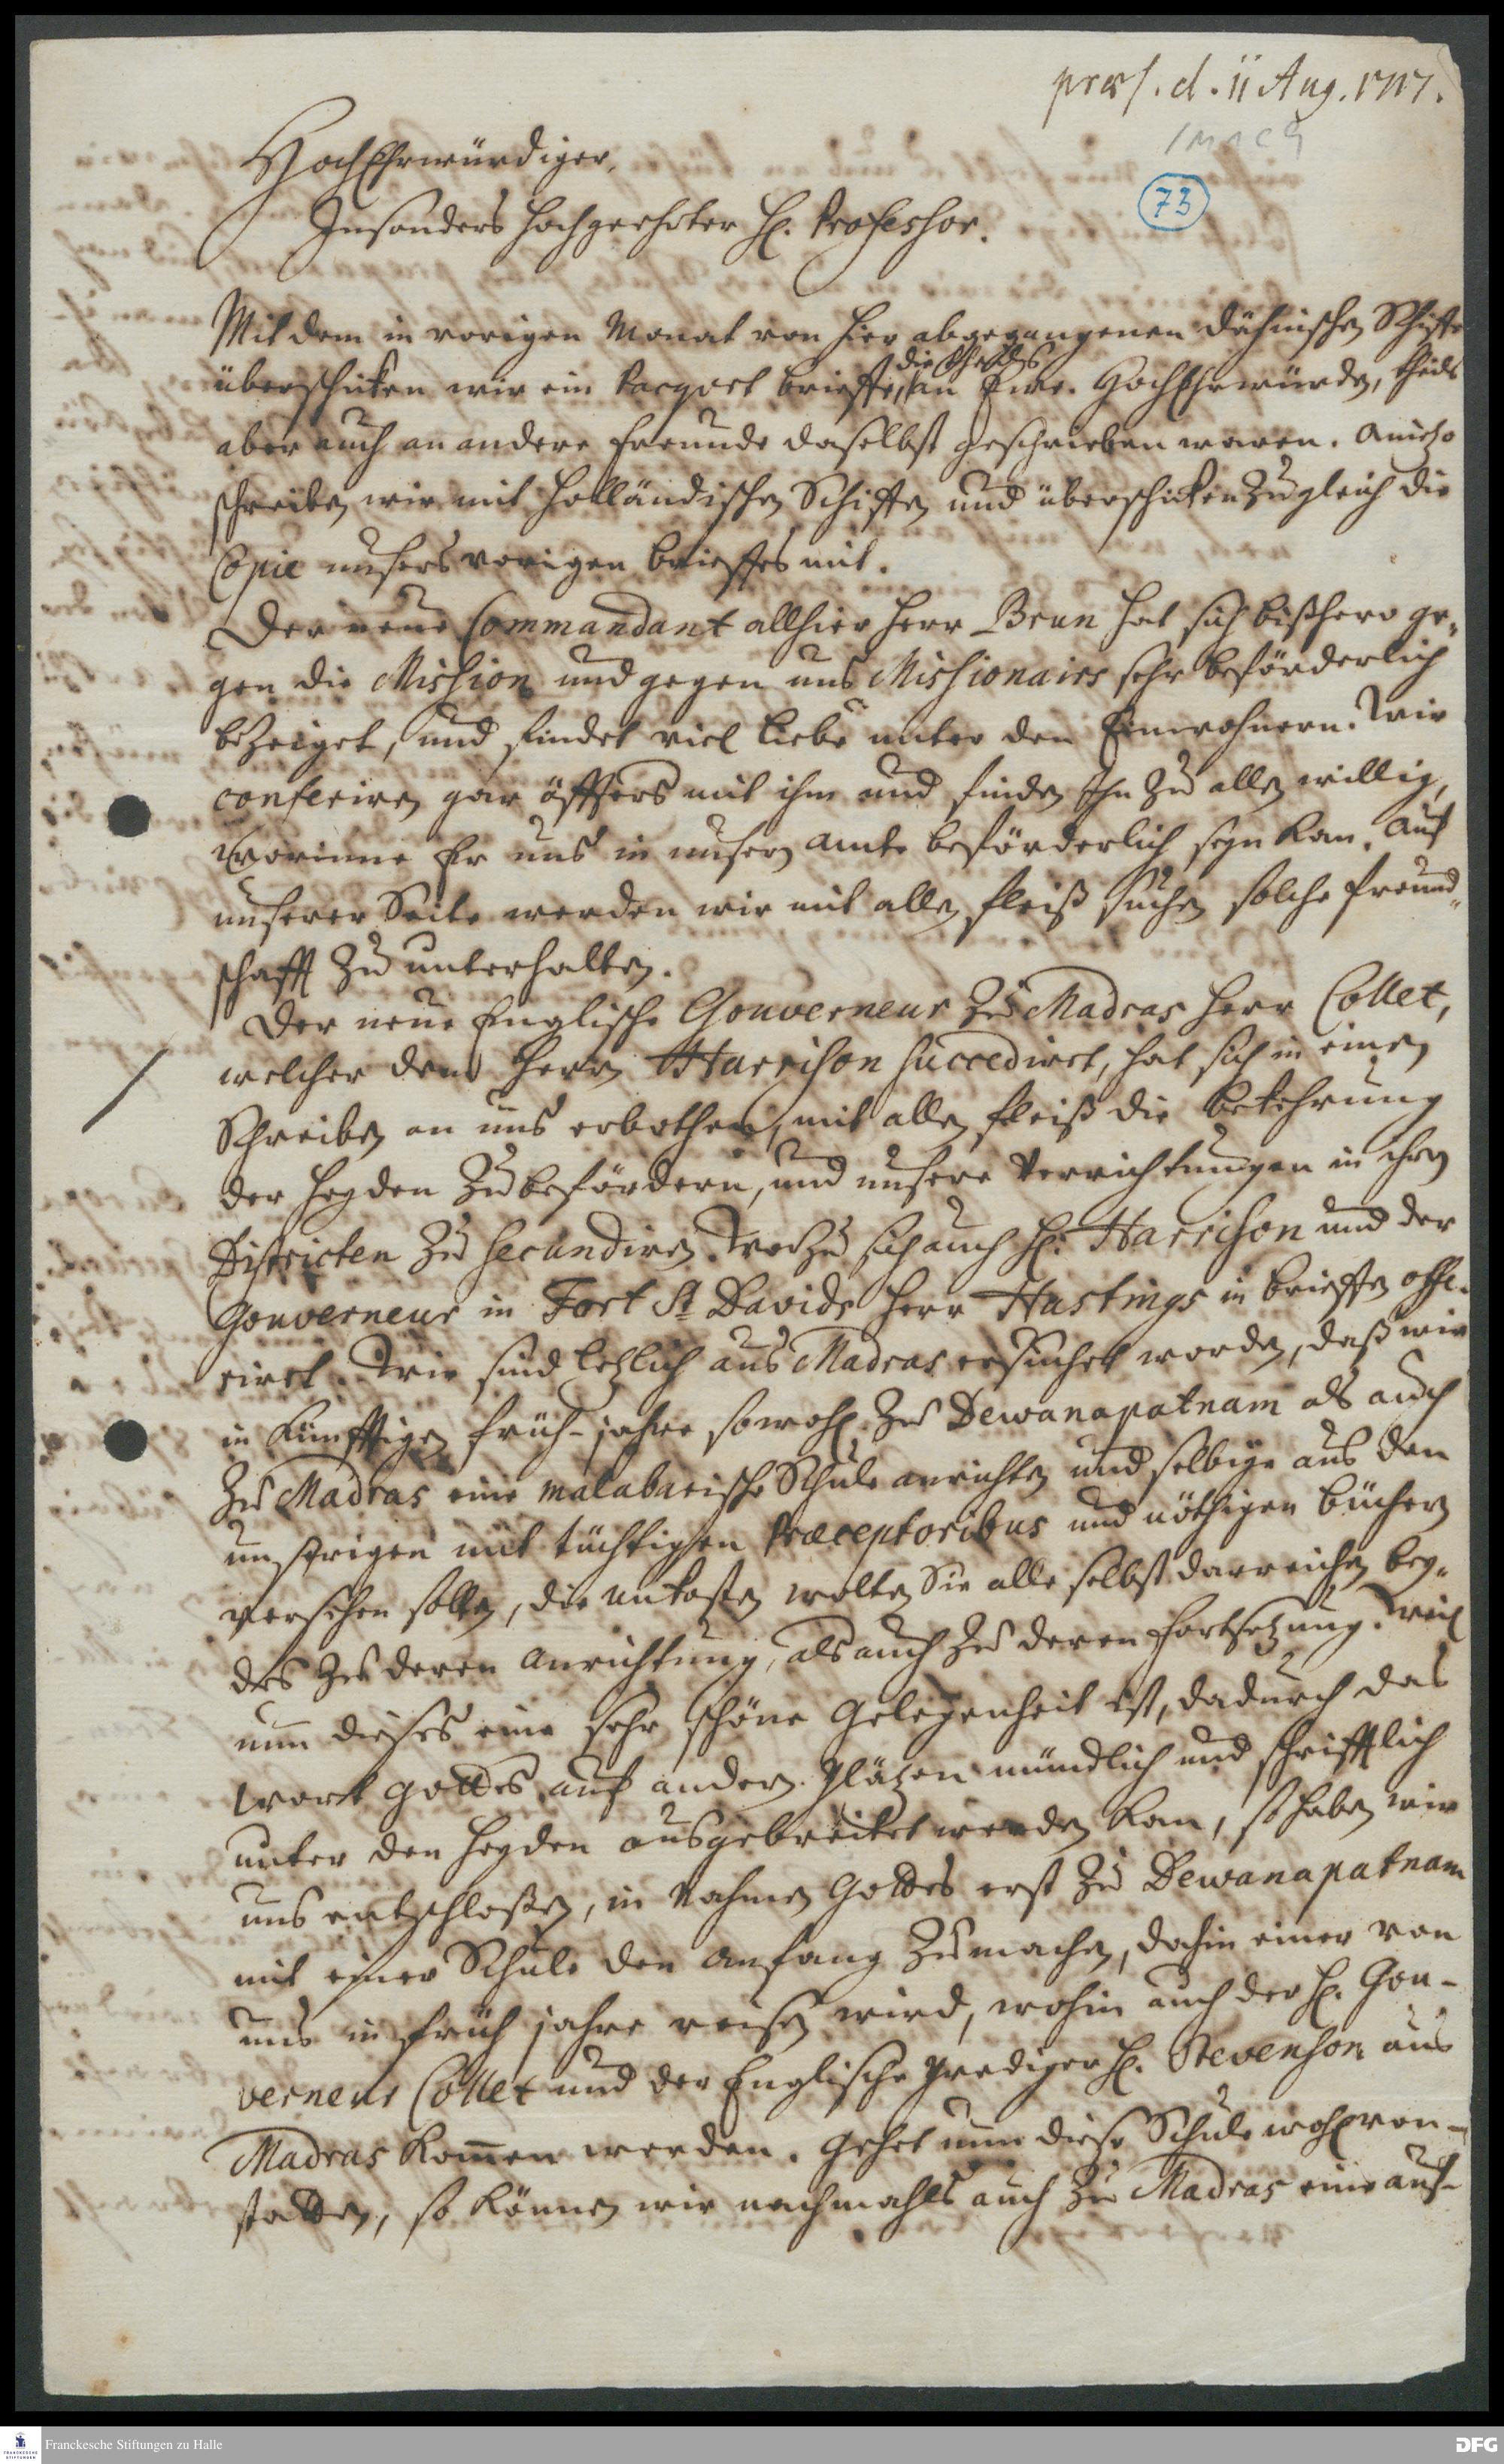 præs. d. 11 Aug. 1717.
1 M 1 C 9
73
HochEhrwürdiger,
Insonders hochgeehrter H. Professor.
Mit dem in vorigen Monat von hier abgegangenen dähnischen Schiffe
überschicken wir ein Pacquet brieffe, die theils an Ewr. HochEhrwürden, theils
aber auch an andere freunde daselbst geschrieben waren. Anietzo
schreiben wir mit Holländischen Schiffen und überschicken zugleich die
Copie unsers vorigen brieffes mit.
Der neue Commandant allhier Herr Brun hat sich bißhero ge-
gen die Mission und gegen uns Missionaires sehr beförderlich
bezeiget, und findet viel liebe unter den Einwohnern. Wir
conferiren gar öffters mit ihm und finden Ihn zu allen willig,
worinne Er uns in unsern Amte beförderlich seyn kan. Auf
unserer Seite werden wir mit allen fleiß suchen solche freund-
schafft zu unterhalten.
Der neue Englische Gouverneur zu Madras Herr Collet,
welcher dem Herrn Harrison succediret, hat sich in einen
Schreiben an uns erbothen, mit allen fleiß die bekehrung
der Heyden zu befördern, und unsere Verrichtungen in ihren
Districten zu secundiren. Worzu sich auch H. Harrison und der
Gouverneur in Fort St Davids Herr Hastings in brieffen offe-
riret. Wir sind letzlich aus Madras ersuchet worden, daß wir
in künfftigen früh-jahre sowohl zu Dewanapatnam als auch
zu Madras eine malabarische Schule anrichten und selbige aus den
unsrigen mit tüchtigen Præceptoribus und nöthigen büchern
versehen solten, die unkosten wolten Sie alle selbst darreichen bey-
des zu deren Anrichtung, als auch zu deren fortsetzung. Weil
nun dieses eine sehr schöne gelegenheit ist, dadurch das
wort gottes auf andern plätzen mündlich und schrifftlich
unter den Heyden ausgebreitet werden kan, so haben wir
uns entschloßen, in Nahmen Gottes erst zu Dewanapatnam
mit einer Schule den Anfang zu machen, dahin einer von
uns in früh jahre reisen wird, wohin auch der H. Gou-
verneur Collet und der Englische prediger H. Stevenson aus
Madras kom̃en werden. Gehet nun diese Schule wohl von-
statten, so können wir nachmahls auch zu Madras eine auf-
Franckesche Stiftungen zu Halle
DFG